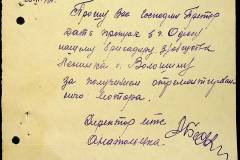 Прошу Вас господин Претор
дать пропуск в г. Одессу
нашему бригадиру
Ленинка с. Волошину
за получением отремонтирован
ного мотора.
Директор мтс